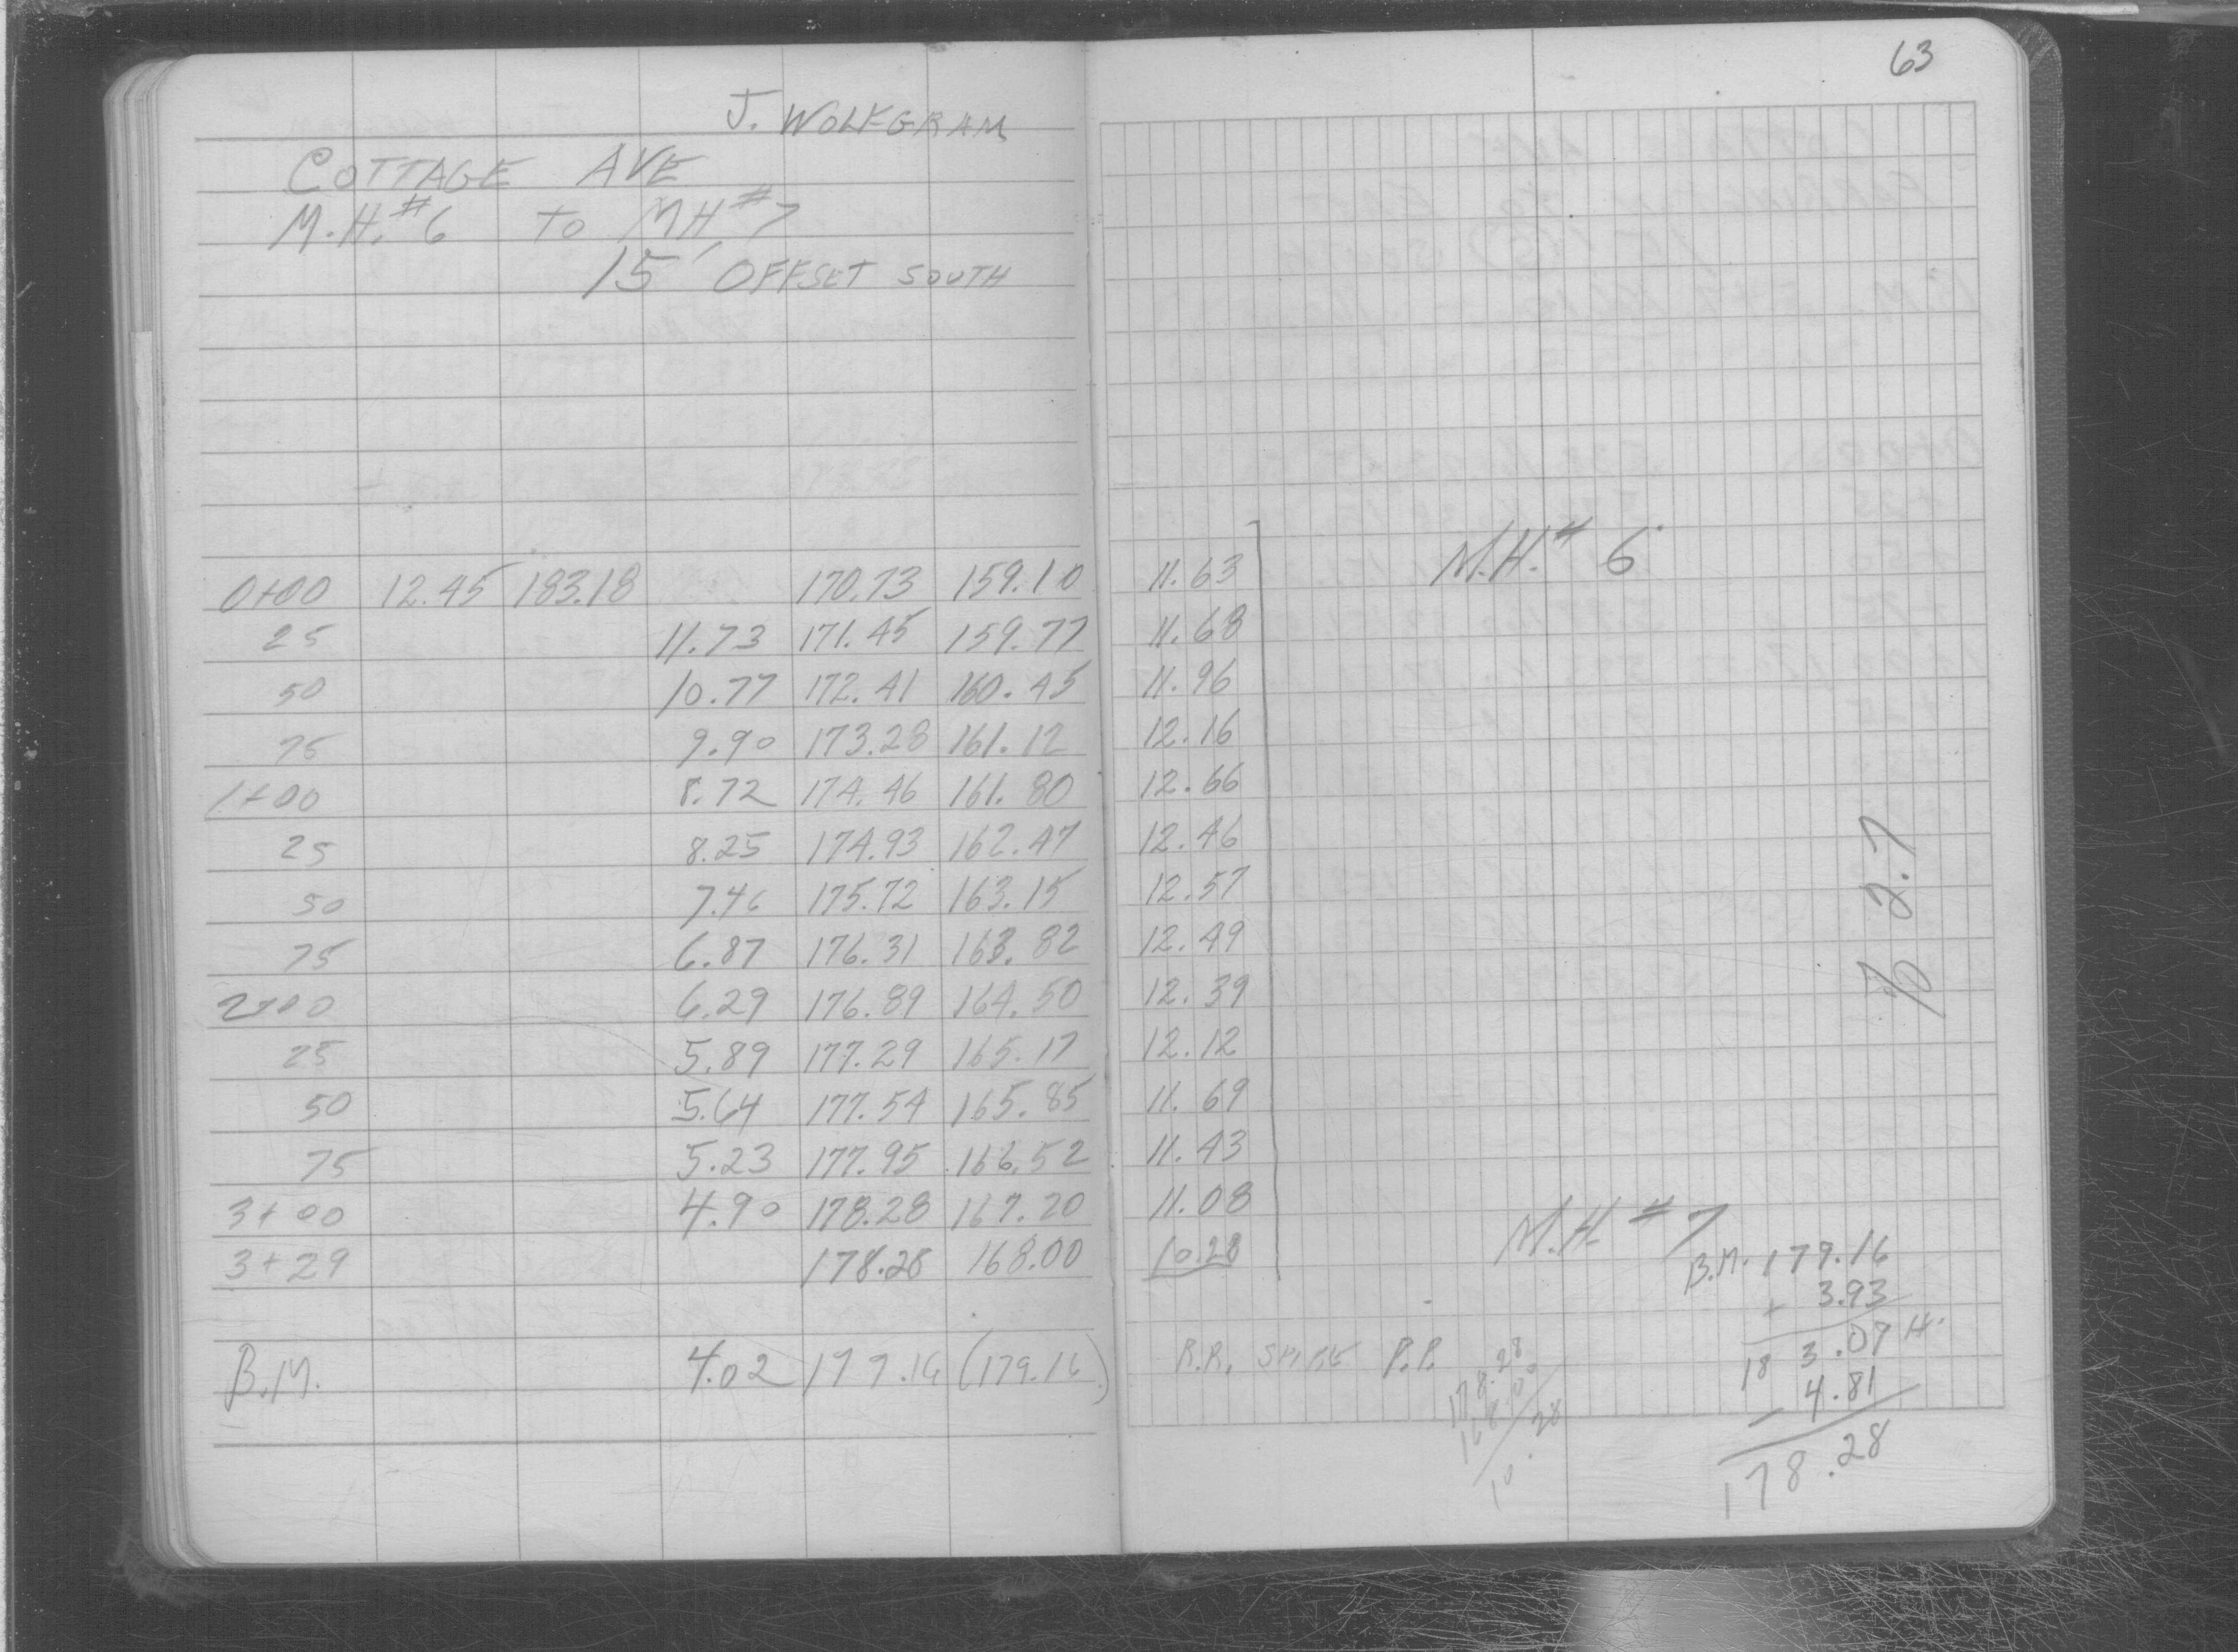 63
J. WOLFGRAM
COTTAGE AVE
M.H.#6 TO MH#7
15' OFFSET SOUTH
0+00 12.45 183.18 170.73 159.10 11.63 M.H.# 6
25 11.73 171.45 159.77 11.68
50 10.77 172.41 160.45 11.96
75 9.90 173.28 161.12 12.16
1+00 8.72 174.46 161.80 12.66
25 8.25 174.93 162.47 12.46
50 7.46 175.72 163.15 12.57
75 6.87 176.31 163.82 12.49
2+00 6.29 176.89 164.50 12.39
25 5.89 177.29 165.17 12.12
50 5.64 177.54 165.85 11.69
75 5.23 177.95 166.52 11.43
3+00 4.90 178.28 167.20 11.08 M.H. # 7
3+29 178.28 168.00 10.28
B.M. 4.02 179.16 (179.16) R.R. SPIKE P.P.
% 2.7
B.M. 179.16
+ 3.93
183.09 H.
- 4.81
178.28
178.28
168.00
10.28